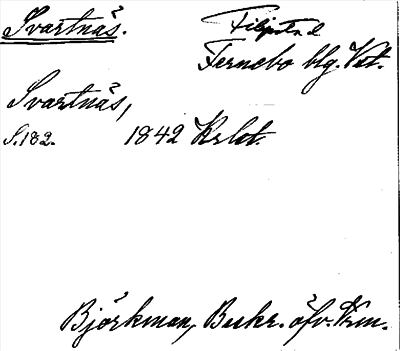 Svartnäs.
Filipstad
Fernebo blg. Vst.
Svartnäs,
S. 182. 1842 Krlot.
Björkman, Beskr. öfv. Vrm.